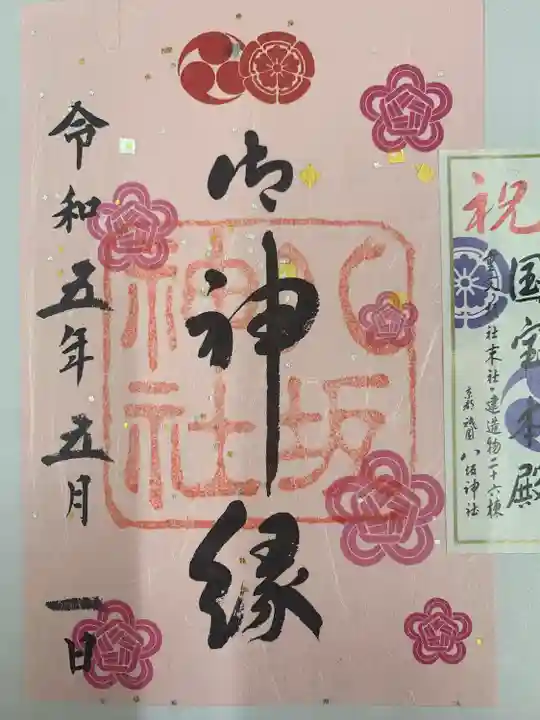 祝
国宝本殿
社末社・建造物二十六棟
京都 祇園 八坂神社
御神縁
八坂神社
令和五年五月一日